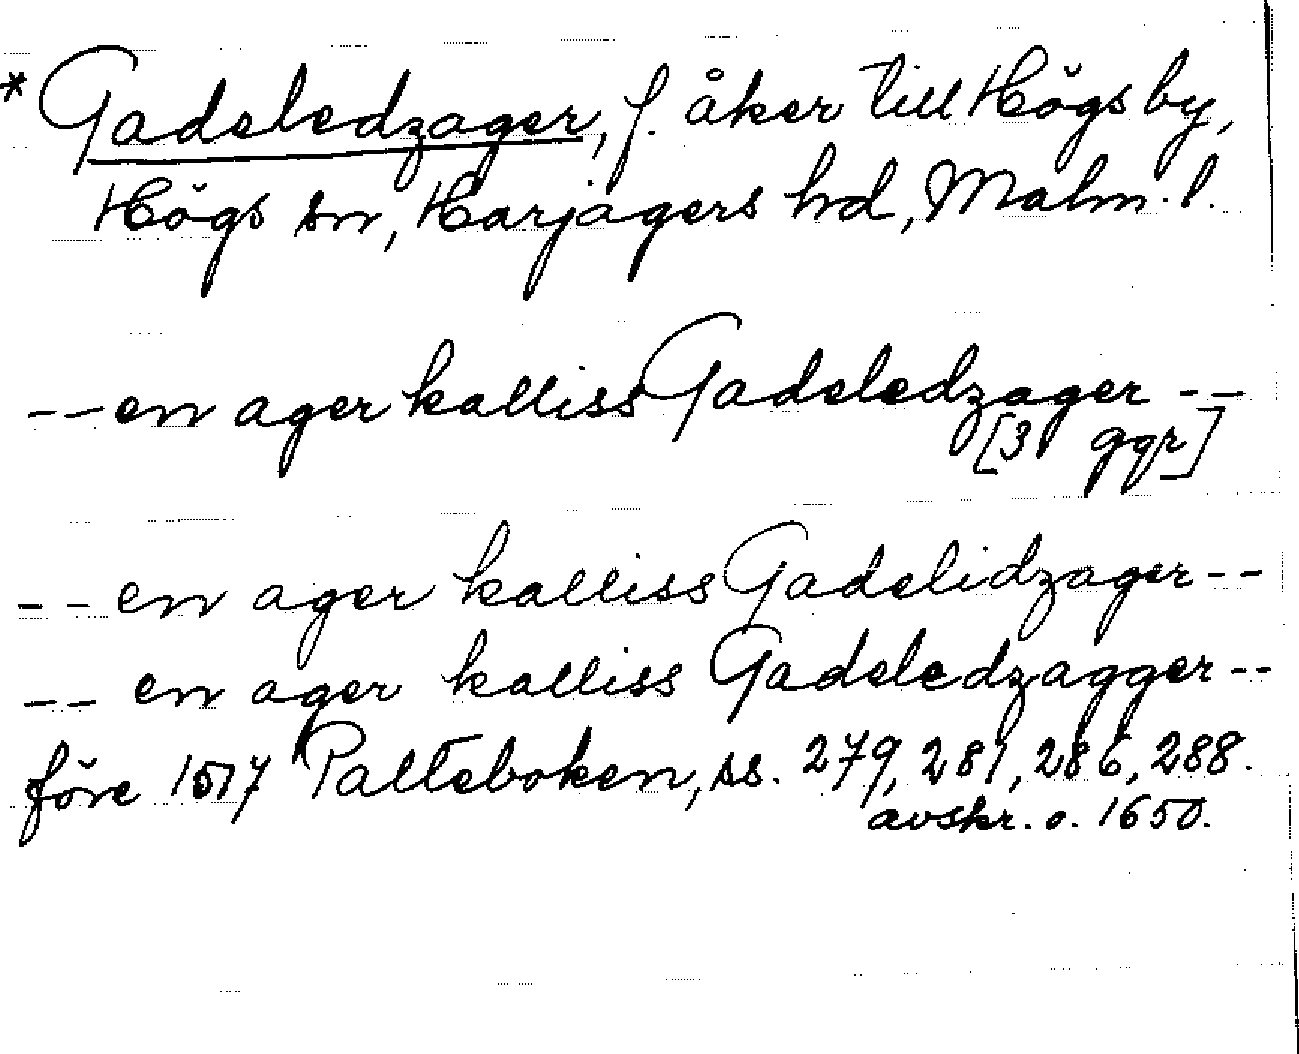 * Gadeledzager, f. åker till Högs by,
Högs sn, Harjagers hd, Malm. l.
-- en ager kalliss Gadeledzager --
[3 ggr]
-- en ager kalliss Gadelidzager --
-- en ager kalliss Gadeledzagger --
före 1517 Palteboken, ss. 279, 281, 286, 288.
avskr. o. 1650.